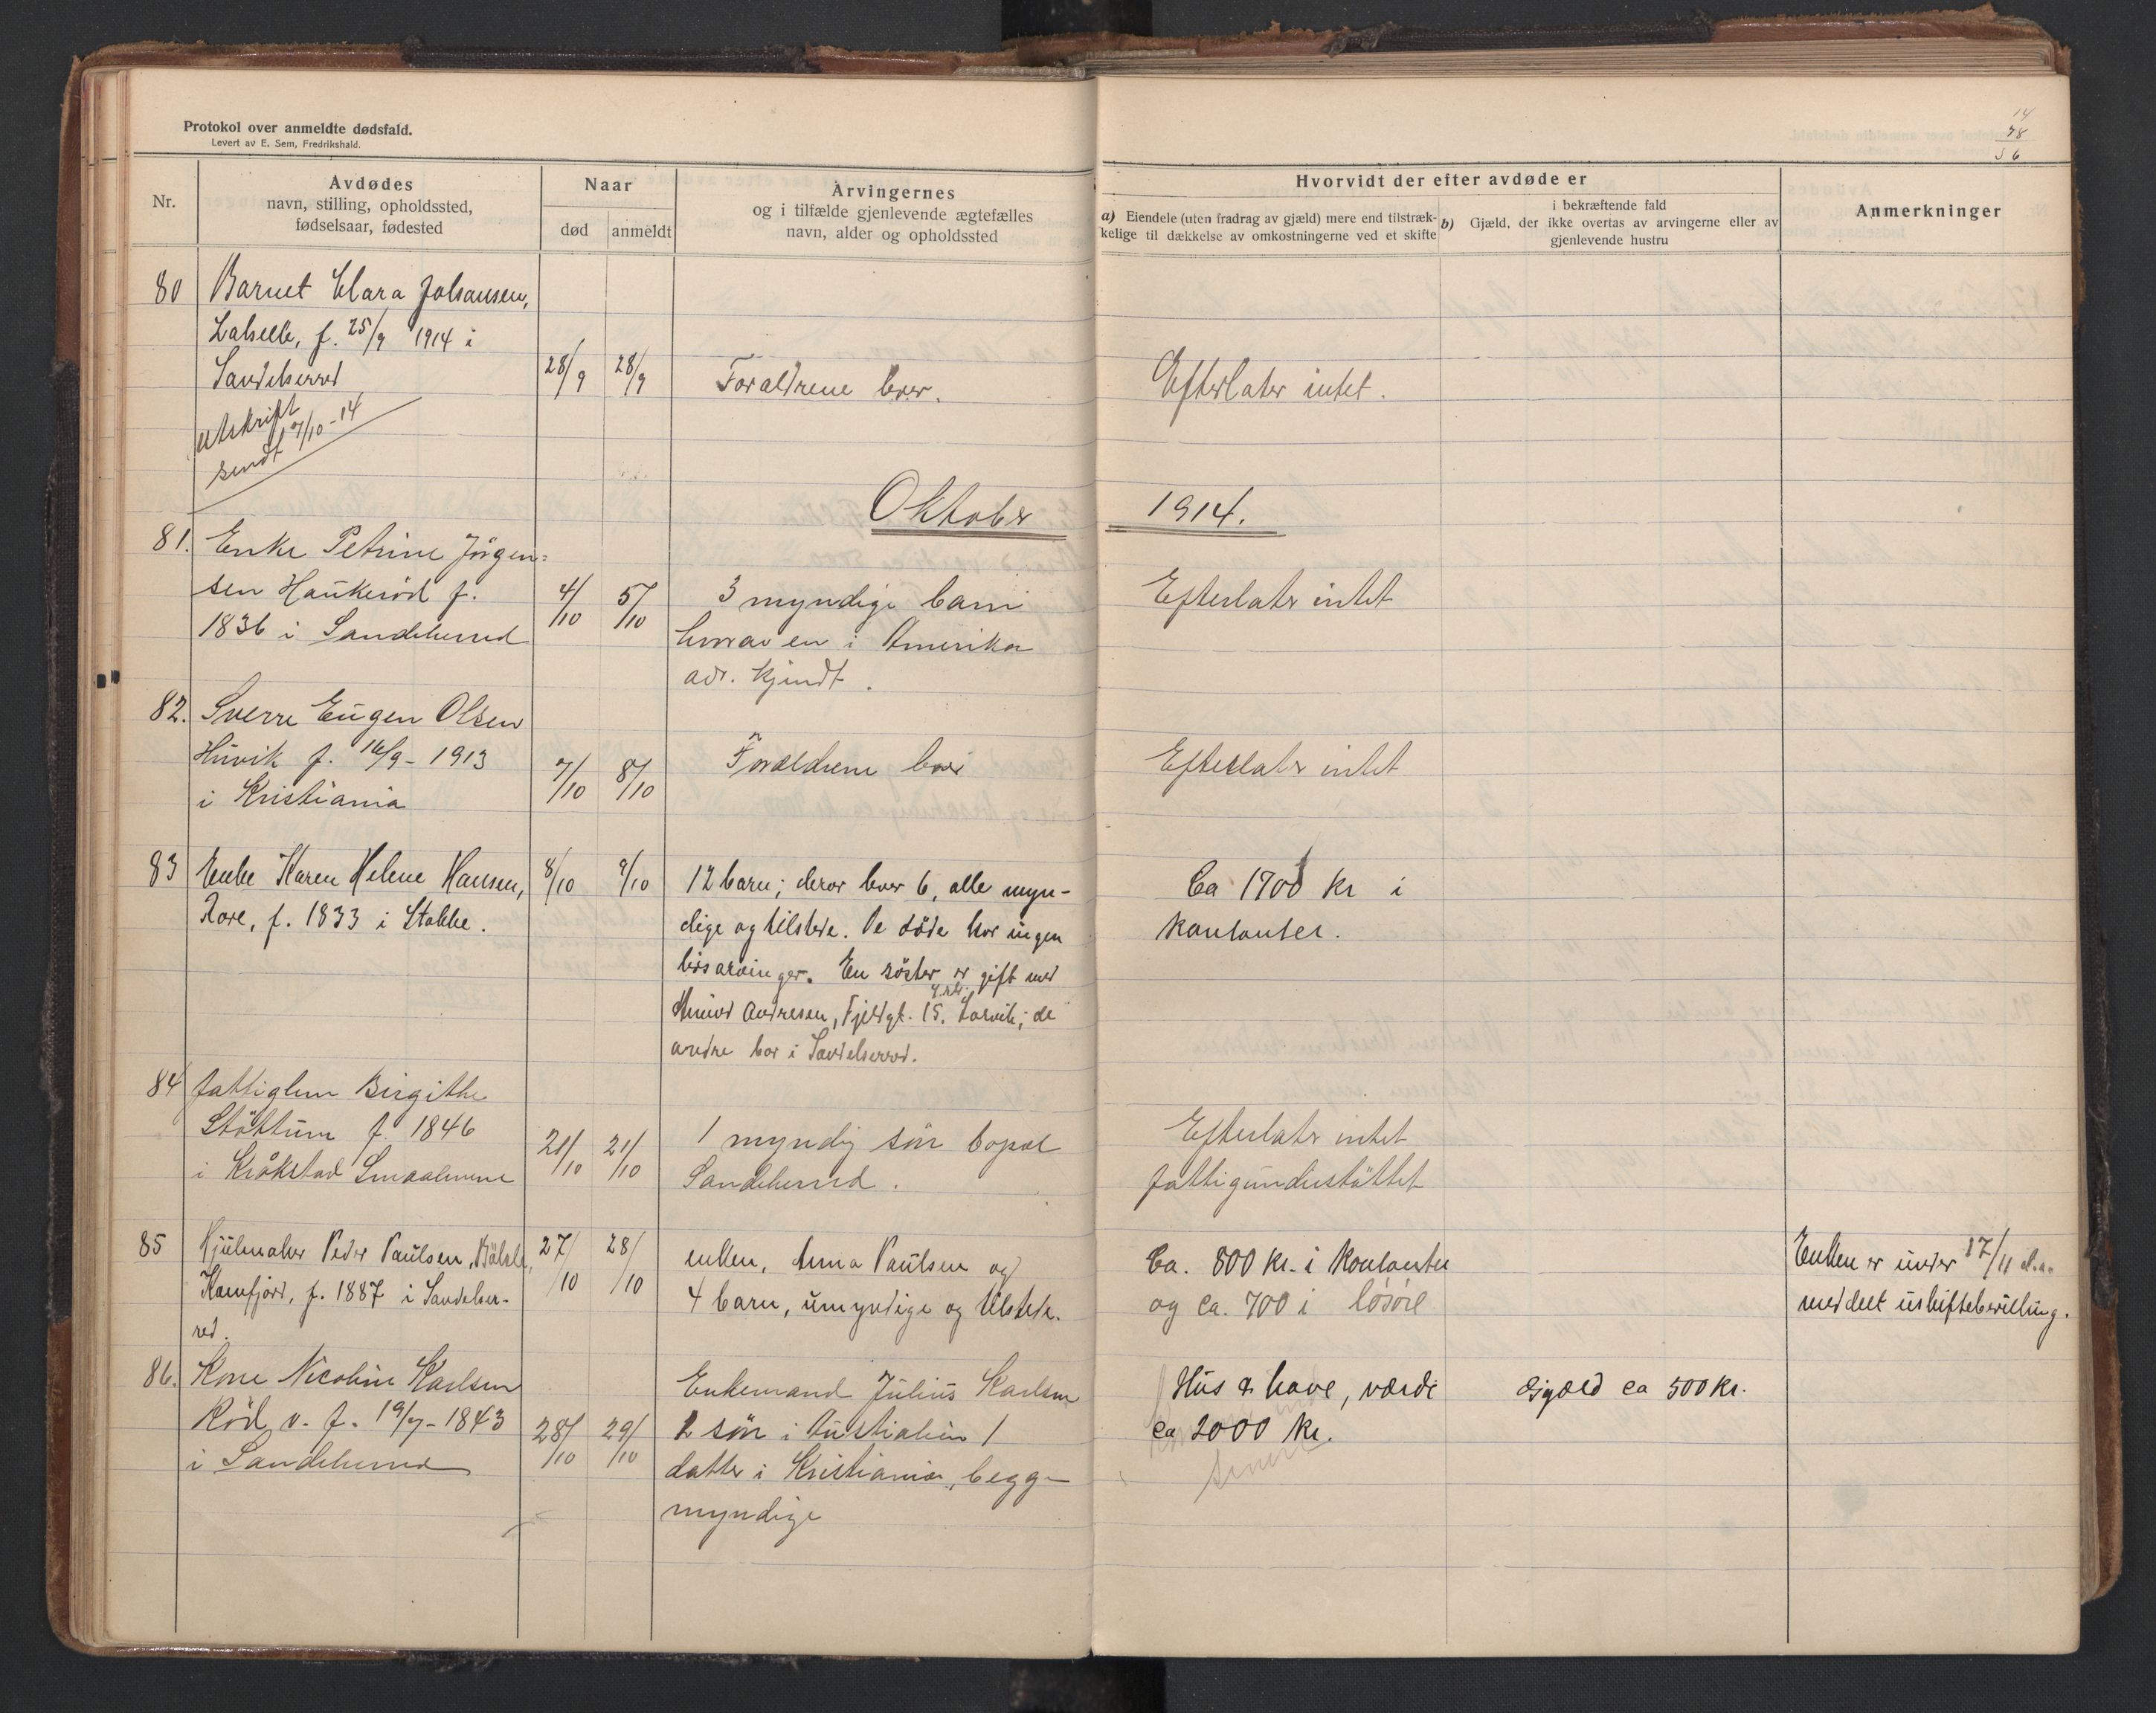 Protokol over anmeldte dødsfald.
Levert av E. Sem, Fredrikshald.
14
78
56
Nr.
Avdødes
navn, stilling, opholdssted,
fødselsaar, fødested
Naar
død
anmeldt
Arvingernes
og i tilfælde gjenlevende ægtefælles
navn, alder og opholdssted
Hvorvidt der efter avdøde er
a) Eiendele (uten fradrag av gjæld) mere end tilstræk-
kelige til dækkelse av omkostningerne ved et skifte
i bekræftende fald
b) Gjæld, der ikke overtas av arvingerne eller av
gjenlevende hustru
Anmerkninger
80 Barnet Clara Johansen,
f. 25/9 1914 i
Sandeherred
28/9 28/9 Forældrene lever. Efterlater intet.
utskrift
sendt 7/10-14
Oktober 1914.
81. Enke Petrine Jörgen=
sen Haukeröd f.
1836 i Sandeherred
4/10 5/10 3 myndige barn
hvorav en i Amerika
adr. kjendt.
Efterlater intet
82. Sverre Eugen Olsen
Huvik f. 16/9-1913
i Kristiania
7/10 8/10 Forældrene lever Efterlater intet
83 Enke Karen Helene Hansen,
f. 1833 i Stokke.
8/10 9/10 12 barn; derav lever 6, alle myn-
dige og tilstede. De döde har ingen
livsarvinger. En söster er gift med
Andresen, Fjeldgt. 15, Larvik; de
andre bor i Sandeherred.
Ca 1700 kr i
kontanter.
84 fattiglem Birgithe
Stöttum f. 1846
i Kråkstad Smaalenene
21/10 21/10 1 myndig sön bopæl
Sandeherred.
Efterlater intet
fattigunderstöttet
85 Hjulmaker Peder Paulsen,
Kamfjord, f. 1887 i Sandeher-
red.
27/10 28/10 enken, Anna Paulsen og
4 barn, umyndige og tilstede.
Ca. 800 kr. i kontanter
og ca. 700 i lösöre
Enken er under 17/11 d.a.
meddelt uskiftebevilling.
86. Kone Nicoline Karlsen
Röd v. f. 19/7-1843
i Sandeherred
28/10 29/10 Enkemand Julius Karlsen
1 sön i Australien 1
datter i Kristiania, begge
myndige
Hus & have, værdi
ca 2000 kr.
Gjæld ca 500 kr.